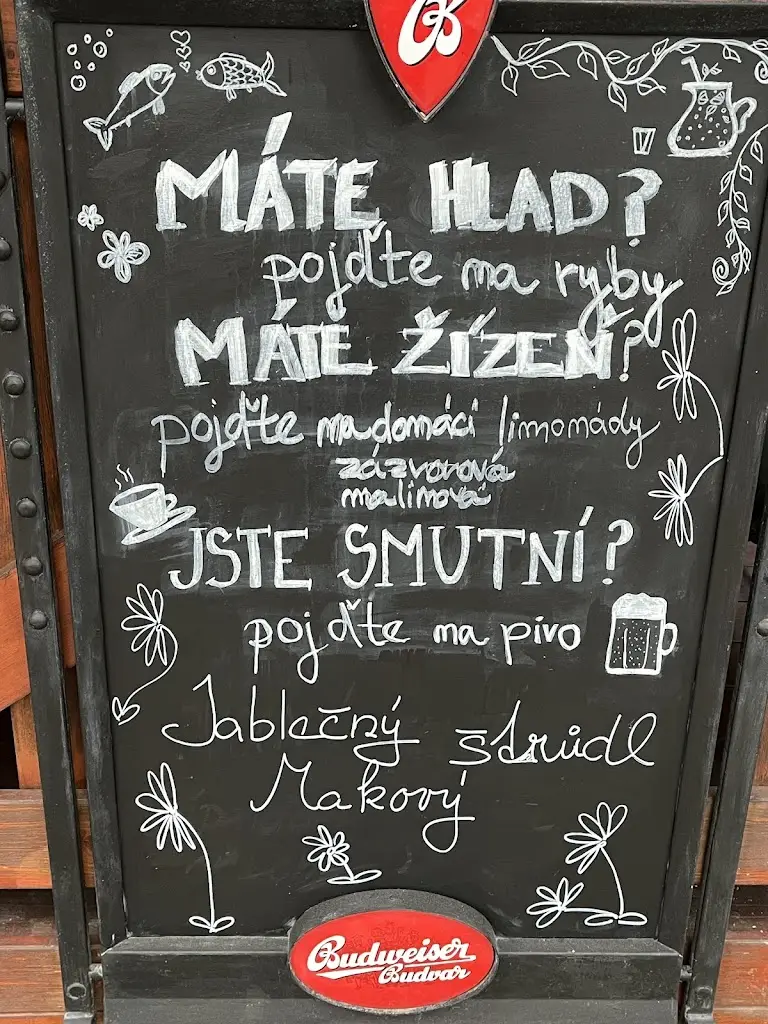 B
MÁTE HLAD?
pojďte na ryby
MÁTE ŽÍZEŇ?
pojďte na domácí limonády
zázvorová
malinová
JSTE SMUTNÍ?
pojďte na pivo
Jablečný štrůdl
Makový
Budweiser
Budvar